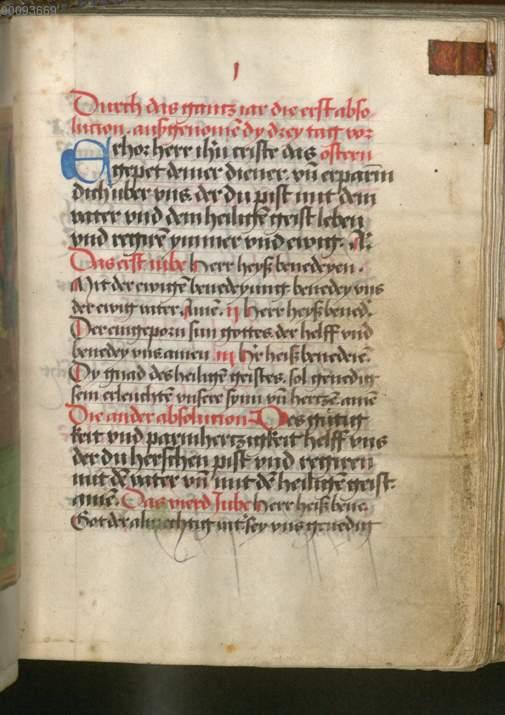 00093669
I
Durch das gantz iar die erst abso-
lucion. außgenomē dy drey tag vor
Erhor herr ihū criste das ostern
gepet deiner diener. vn̄ erparm
dich uber vns. der du pist mit dem
vater vnd dem heiligē geist leben
vnd regirē ymmer vnd ewig. A.
Das erst iube Herr heyß benedeyen.
Mit der ewigē benedeyung benedey vns
der ewig vater. Amē. ii Herr heyß bened.
Der eingeporn sun gottes. der helff vnd
benedey vns amen. iii Hr̄ heiß benedeiē.
Dy gnad des heiligē geistes. sol genedig
sein erleuchtē vnsere synn vn̄ hertzē. amē
Die ander absolucion Des gutig
keit vnd parmhertzigkeit helff vns
der du herschen pist vnd regiren
mit dē vater vn̄ mit dē heiligē geist.
amē. Das vierd Jube Herr heiß bene.
Got der almechtig vat' sey vns genedig